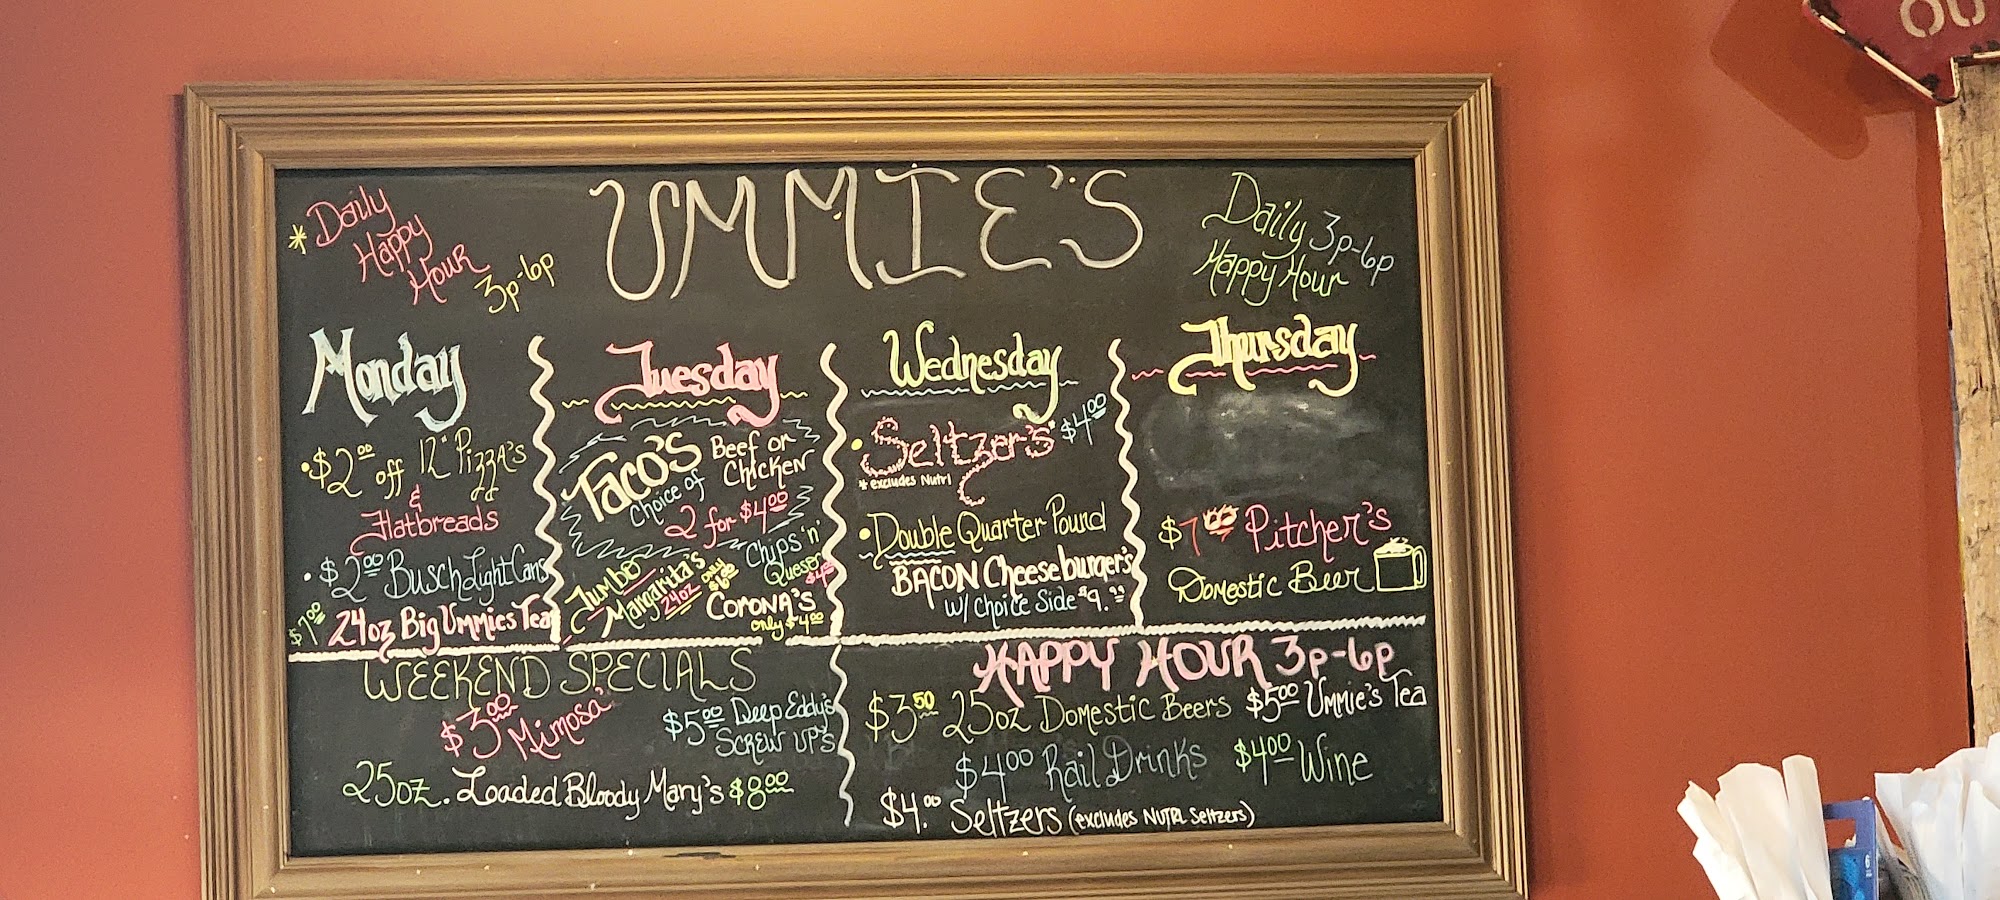 UMMIE'S
* Daily
Happy
Hour
3p-6p
Daily 3p-6p
Happy Hour
Monday
• $2.00 off 12" Pizza's
&
Flatbreads
• $2.00 Busch Light Cans
$7.00 24oz Big Ummies Tea
Tuesday
Taco's Beef or
Chicken
Choice of
2 for $4.00
Chips 'n'
Queso
$4.00
Jumbo
Margarita's
24oz only
$6.00
Corona's
only $4.00
Wednesday
• Seltzer's $4.00
* excludes Nutrl
• Double Quarter Pound
BACON Cheeseburger's
w/ choice Side $9.
Thursday
$7.00 Pitcher's
Domestic Beer
WEEKEND SPECIALS
$3.00
Mimosa'
$5.00 Deep Eddy's
SCREW UP'S
25oz. Loaded Bloody Mary's $8.00
HAPPY HOUR 3p-6p
$3.50 25oz Domestic Beers $5.00 Ummie's Tea
$4.00 Rail Drinks $4.00 Wine
$4.00 Seltzers (excludes NUTRL Seltzers)
OU